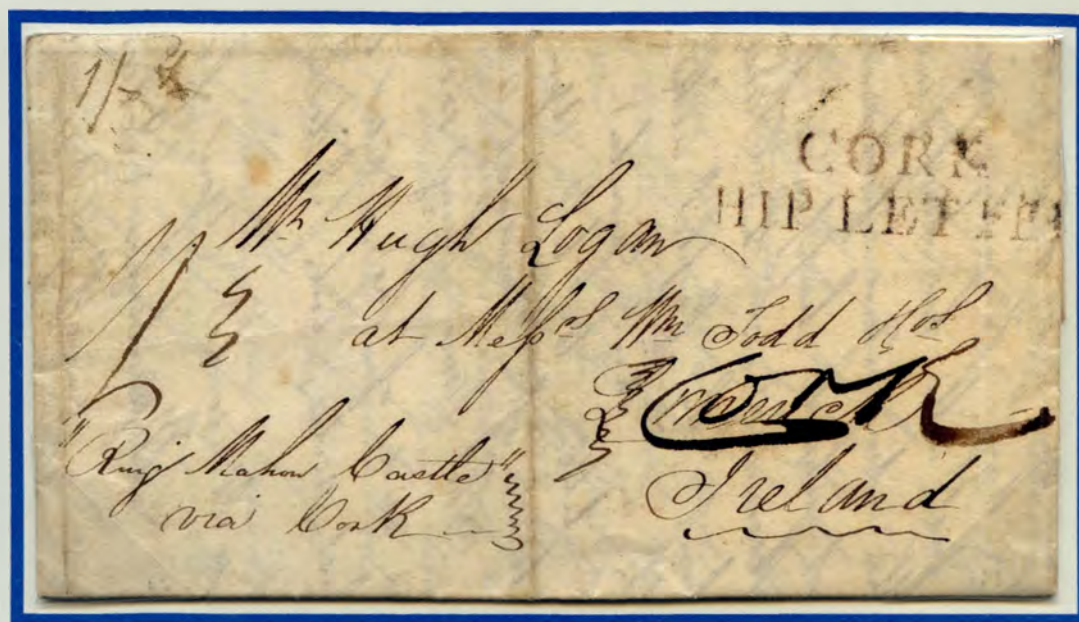 1/-
CORK
HIP LETTER
Mr Hugh Logan
at Messrs Wm Todd
Cork
Ireland
"Ring Mahon Castle"
via Cork